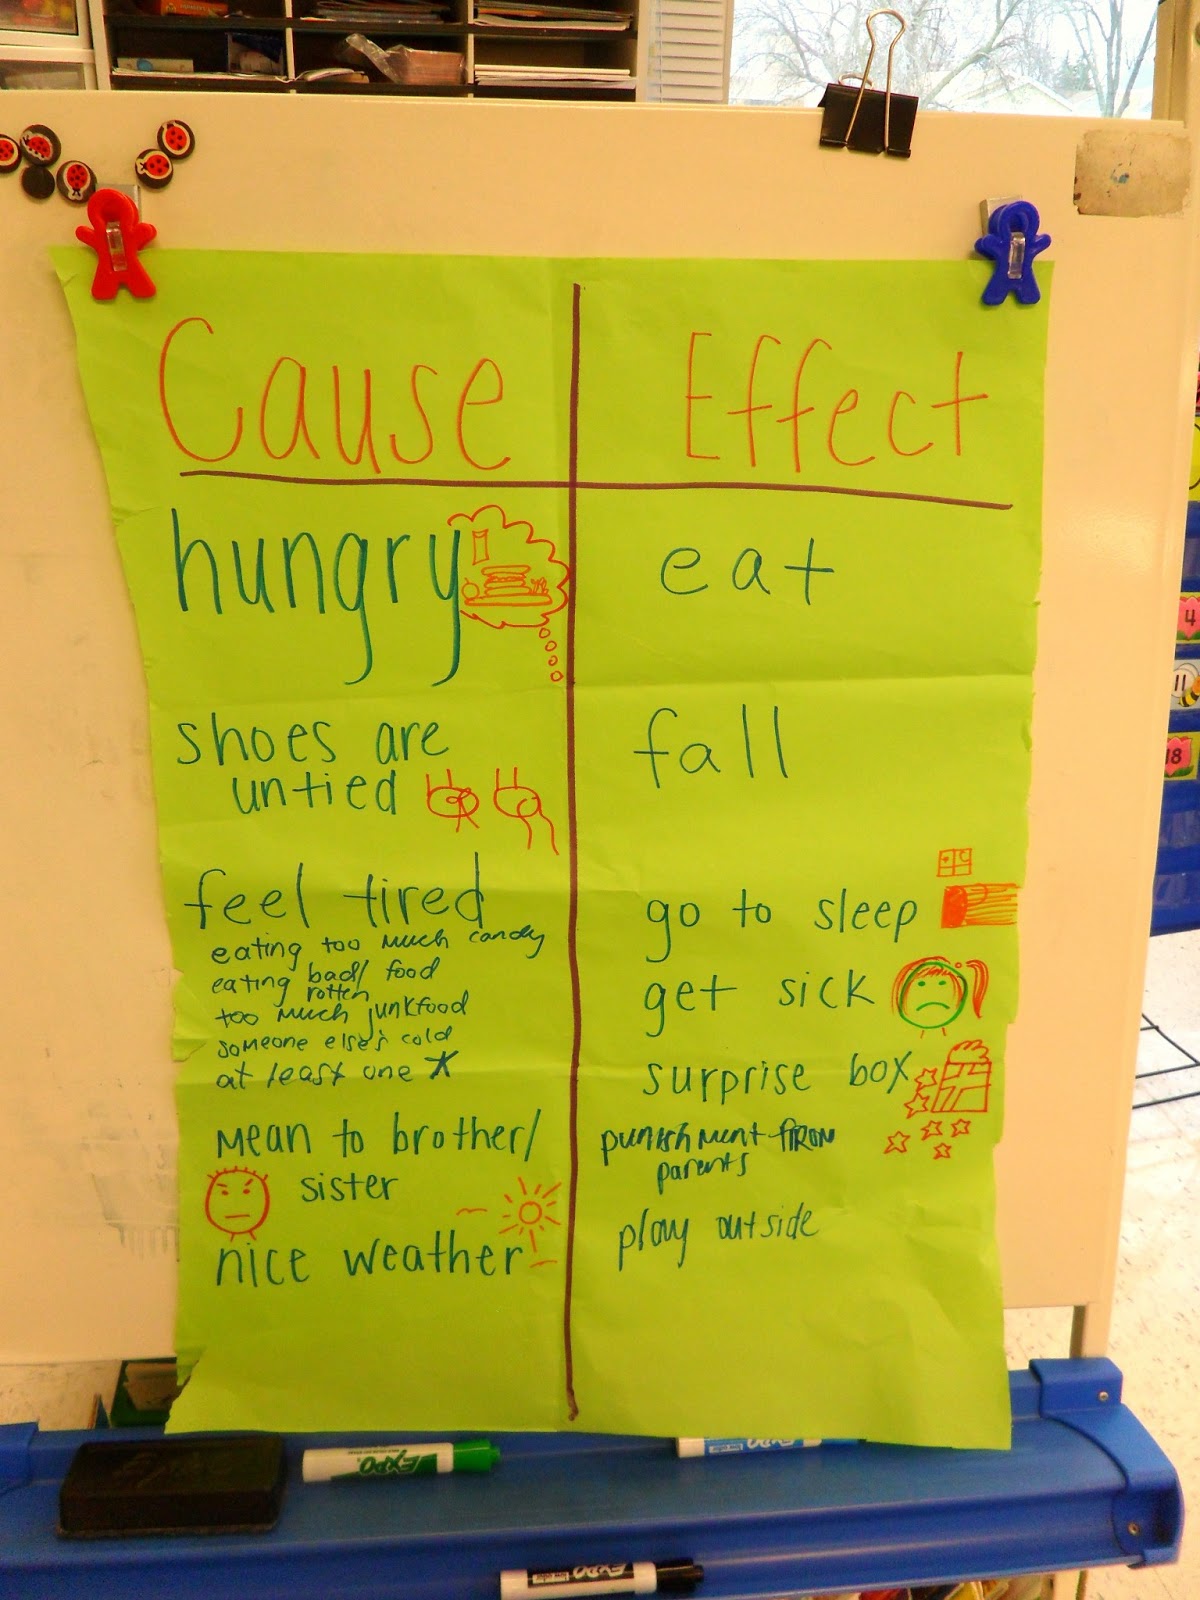 Cause
Effect
hungry
eat
shoes are
untied
fall
feel tired
go to sleep
eating too much candy
eating bad/ food
rotten
too much junkfood
someone else's cold
at least one *
get sick
surprise box
mean to brother/
sister
punishment from
parents
nice weather
play outside
EXPO
EXPO
EXPO
4
11
18